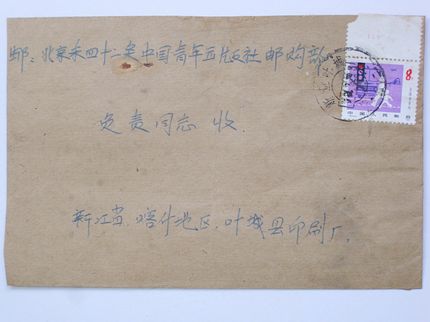 邮:北京东四十二条中国青年出版社邮购部
负责同志 收
新江省.喀什地区.叶城县印刷厂.
8
中国人民邮政